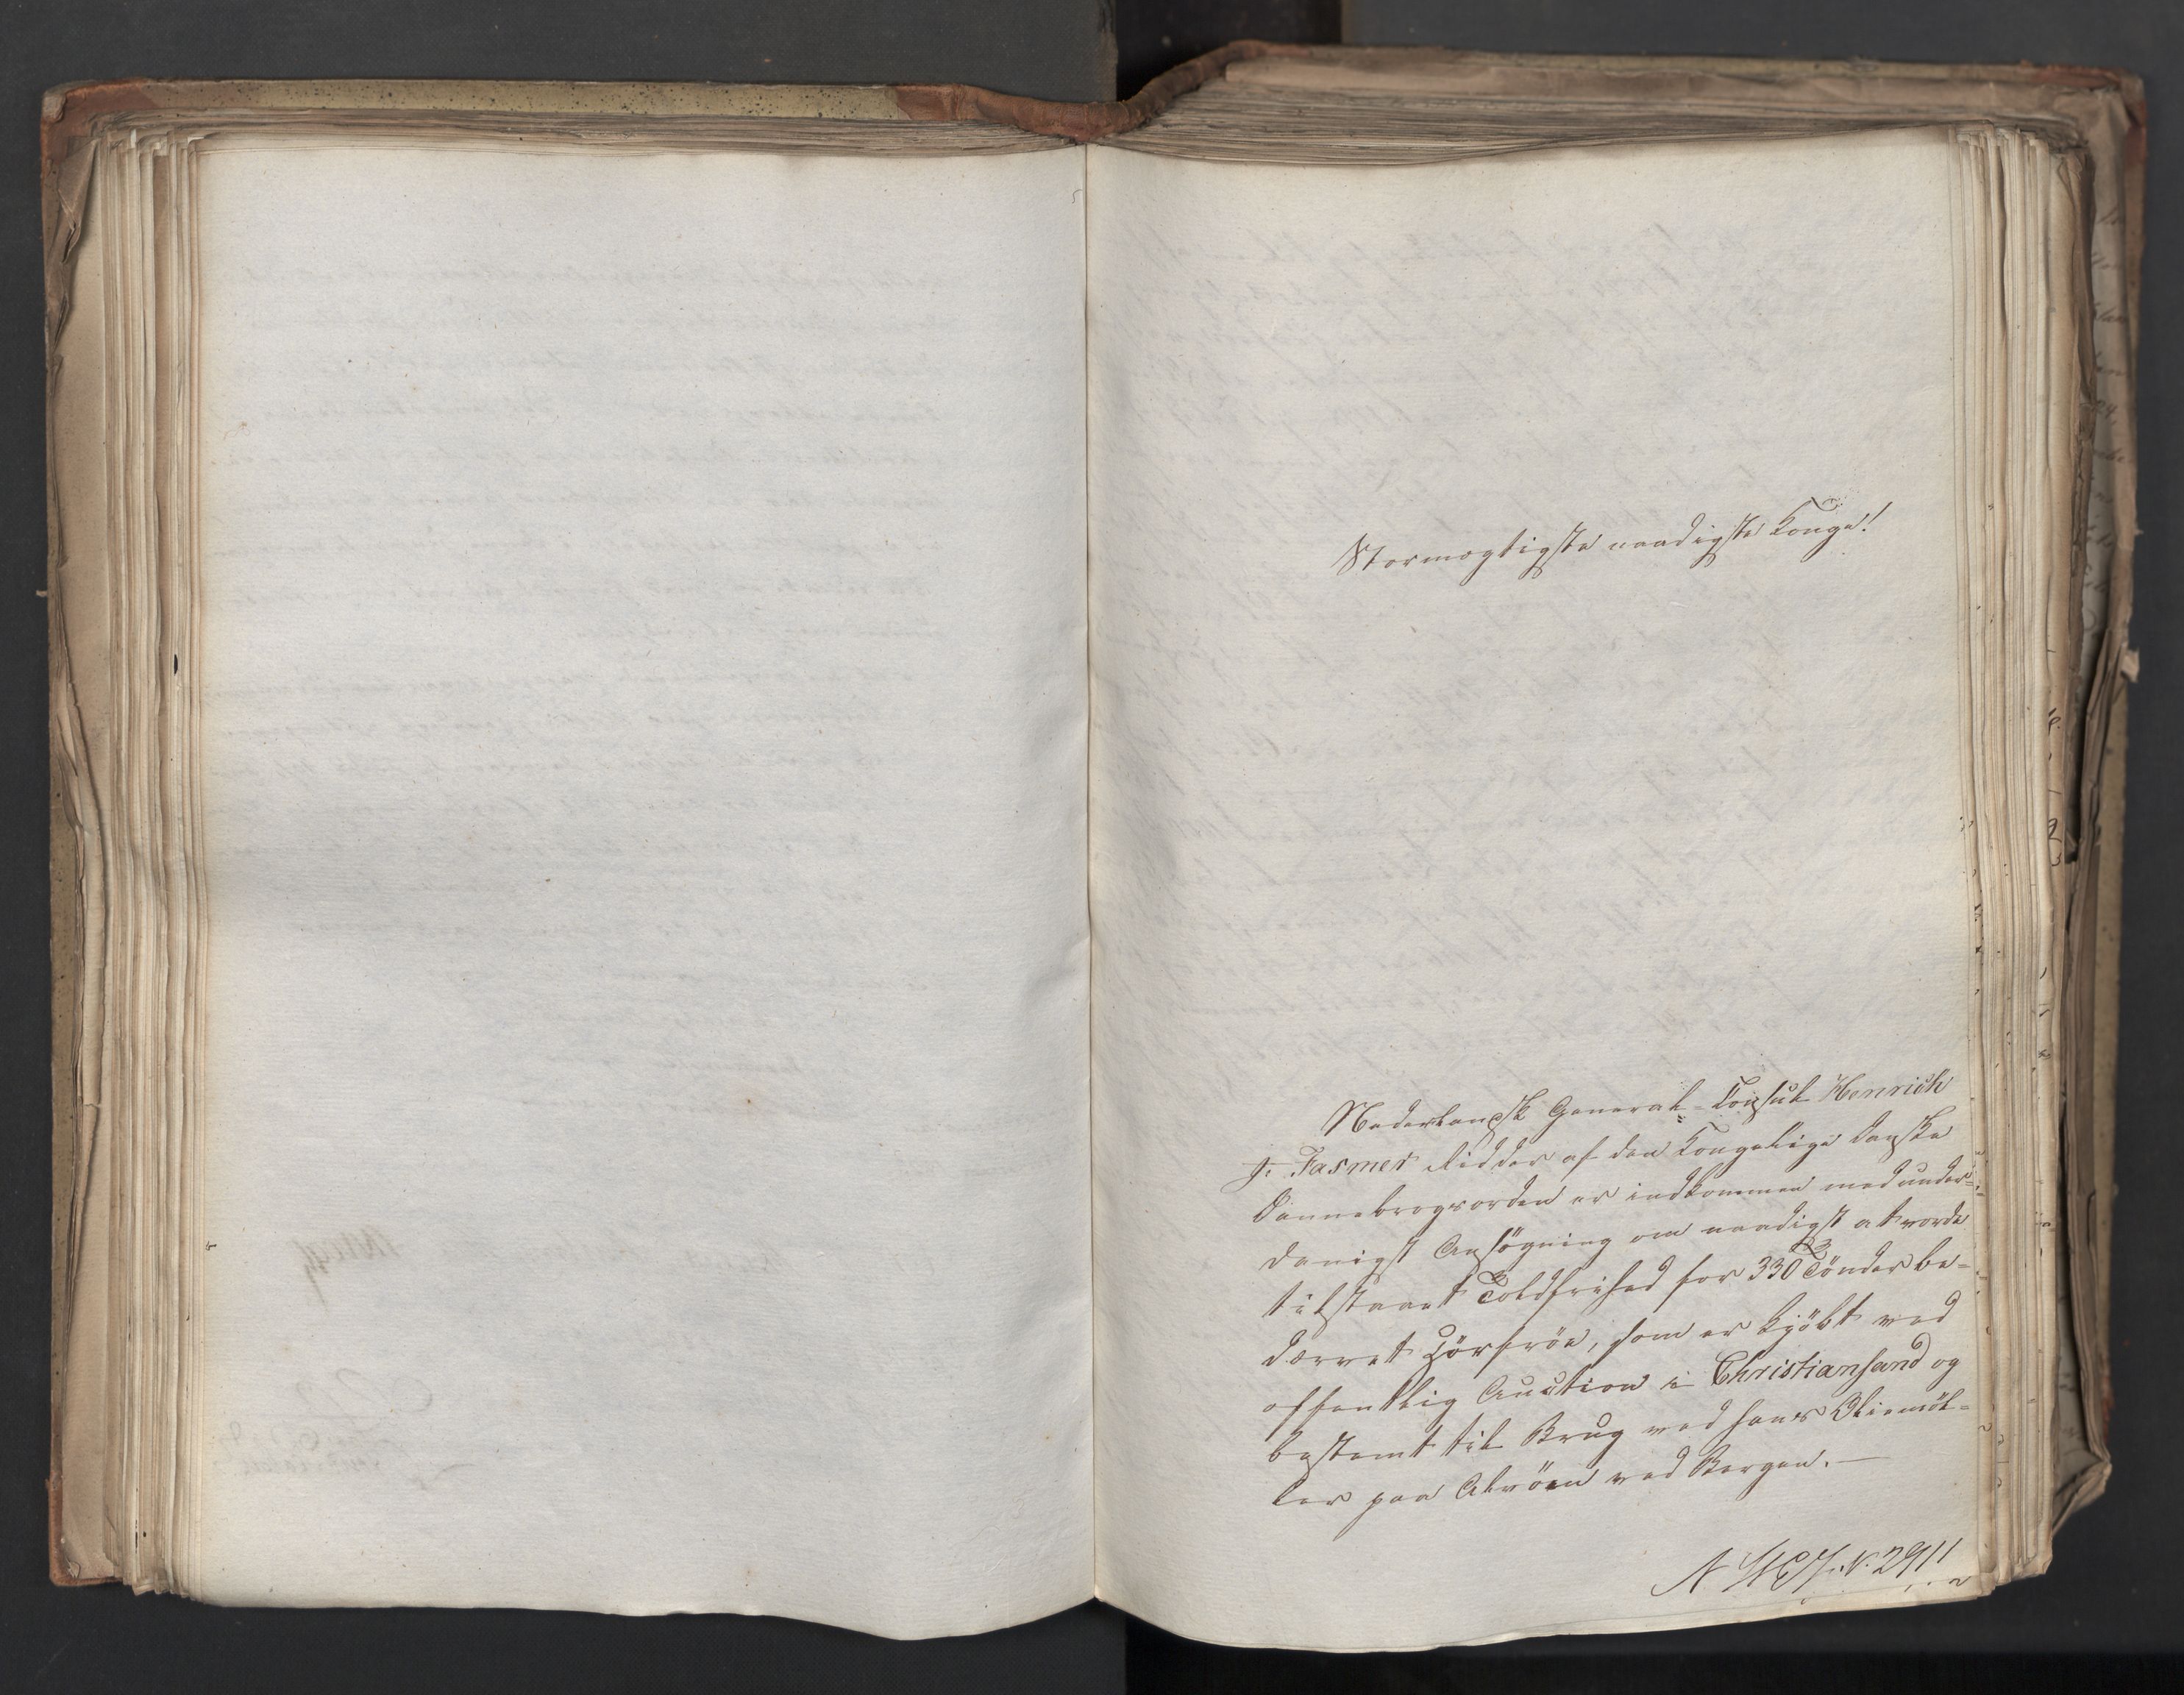 Stormægtigste naadigste Konge!
Nederlandsk General-Consul Henrich
J. Fasmer Ridder af den Kongelige Danske
Dannebrogsorden er indkommen med under-
danigst Ansögning om naadigst at vorde
tilstaaet Toldfrihed for 330 Tönder be-
dærvet Hörfröe, som er kjöbt ved
offentlig Auction i Christiansand og
bestemt til Brug ved hans Oliemöl-
ler paa Alvöen ved Bergen.
N. 2911